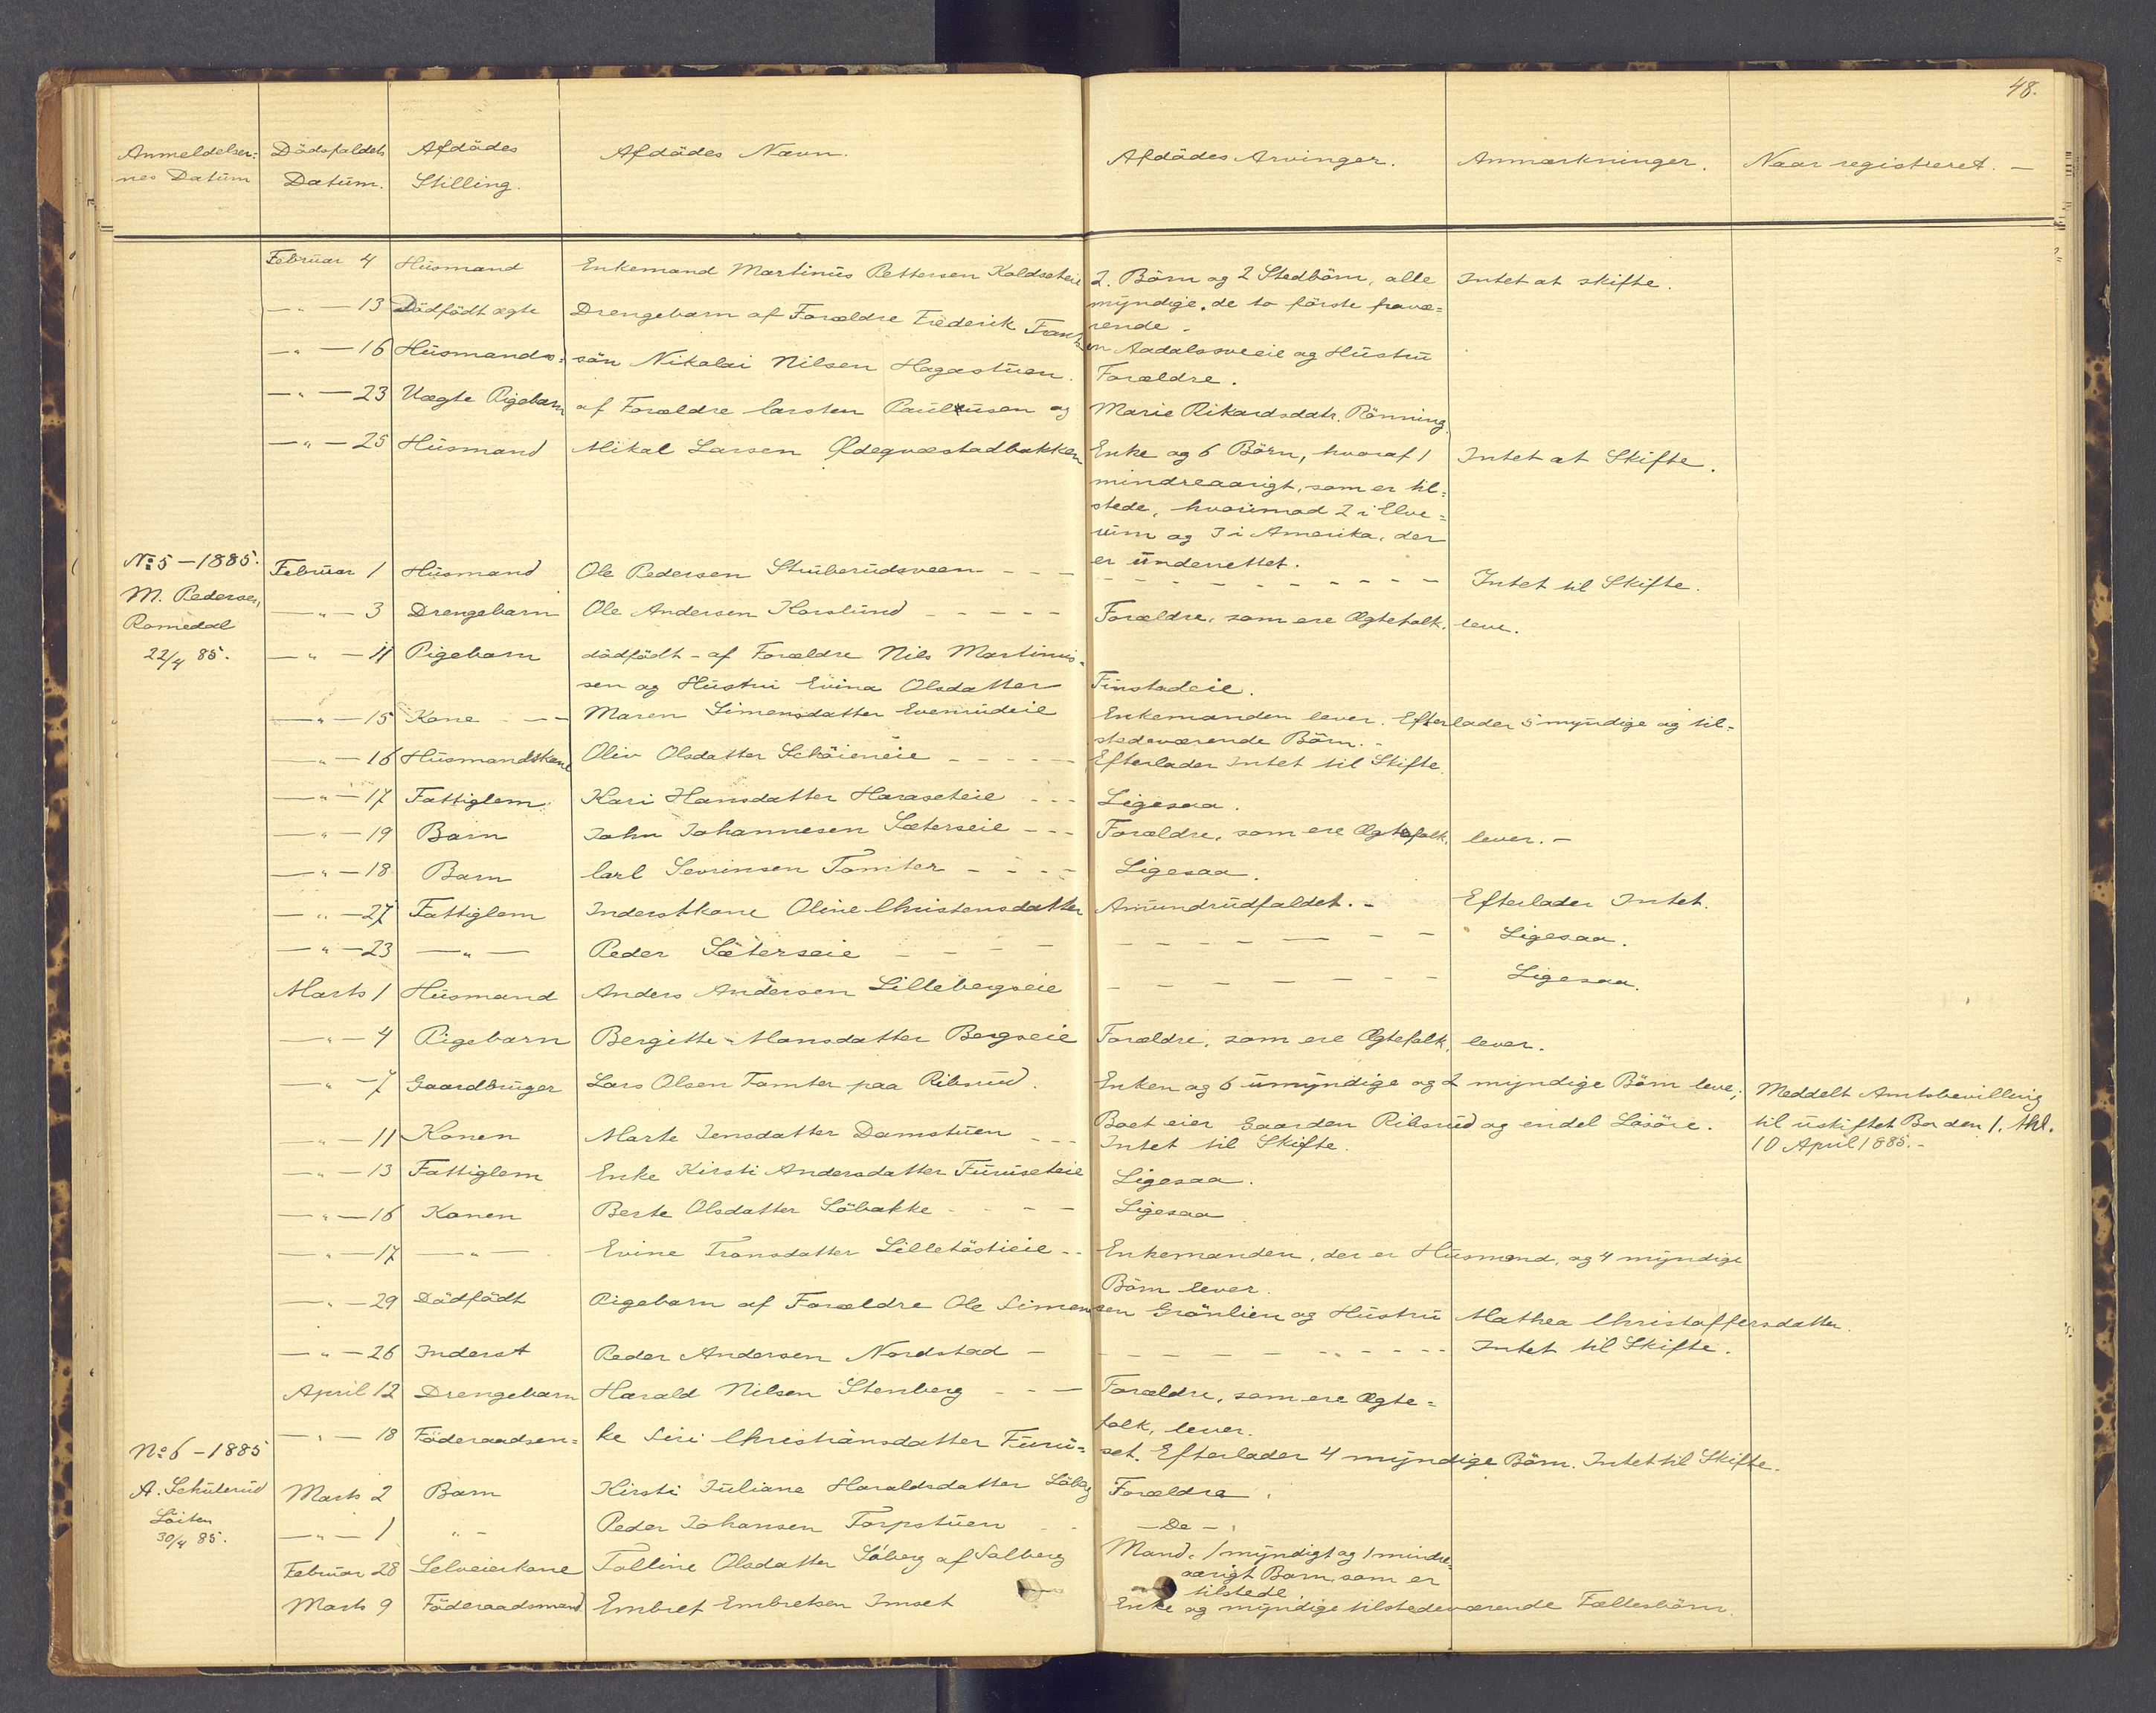 48.
Anmeldelser= Dödsfaldets Afdödes Afdödes Navn. Afdödes Arvinger. Anmærkninger. Naar registreret. —
nes Datum Datum. Stilling.
Februar 4 Husmand Enkemand Martinus Pettersen Koldseteie 2. Börn og 2 Stedbörn, alle Intet at skifte.
myndige, de to förste fravæ=
— " — 13 Dödfödt ægte Drengebarn af Forældre Frederik Frants rende.
en Aadalssveeie og Hustru
— " — 16 Husmands= sön Nikolai Nilsen Hagastuen. Forældre.
— " — 23 Uægte Pigebarn af Forældre Carsten Paulusen og Marie Rikardsdatr. Rönning.
— " — 25 Husmand Mikal Larsen Ødeqvæstadbakken Enke og 6 Börn, hvoraf 1 Intet at Skifte.
mindreaarigt, som er til=
stede, hvorimod 2 i Elve=
rum og 3 i Amerika, der
er underrettet.
No 5 — 1885. Februar 1 Husmand Ole Pedersen Struberudsveen — — — Intet til Skifte.
M. Pedersen, — " — 3 Drengebarn Ole Andersen Horslund — — — Forældre, som ere Ægtefolk, leve.
Romedal
22/4 85. — " — 11 Pigebarn dödfödt - af Forældre Nils Martinus=
sen og Hustru Evina Olsdatter Finstadeie.
— " — 15 Kone — — Maren Simensdatter Evenrudeie Enkemanden lever. Efterlader 5 myndige og til=
stedeværende Börn. —
— " — 16 Husmandskone Oliv Olsdatter Schöieneie — — — Efterlader Intet til Skifte.
— " — 17 Fattiglem Kari Hansdatter Haraseteie — — Ligesaa.
— " — 19 Barn John Johannesen Sæterseie — — Forældre, som ere Ægtefolk, lever. —
— " — 18 Barn Carl Sevrinsen Tomter — — — Ligesaa.
— " — 27 Fattiglem Inderstkone Oline Christensdatter Amundrudfaldet. — Efterlader Intet.
— " — 23 — " — Peder Sæterseie — — — Ligesaa.
Marts 1 Husmand Anders Andersen Lillebergseie — — — Ligesaa.
— " — 4 Pigebarn Bergitte Monsdatter Bergseie Forældre, som ere Ægtefolk, lever.
— " — 7 Gaardbruger Lars Olsen Tomter paa Ribsrud. Enken og 6 umyndige og 2 myndige Börn leve; Meddelt Amtsbevilling
Boet eier Gaarden Ribsrud og endel Lösöre. til uskiftet Bo den 1. tkl.
— " — 11 Konen Marte Jensdatter Damstuen — — Intet til Skifte. 10 April 1885. —
— " — 13 Fattiglem Enke Kirsti Andersdatter Furuseteie Ligesaa.
— " — 16 Konen Berte Olsdatter Löbakke — — — Ligesaa.
— " — 17 — " — Evine Tronsdatter Lilletöstieie — — Enkemanden, der er Husmand, og 4 myndige
Börn lever.
— " — 29 Dödfödt Pigebarn af Forældre Ole Simensen Grönlien og Hustru Mathea Christoffersdatter.
— " — 26 Inderst Peder Andersen Nordstad — — — Intet til Skifte.
April 12 Drengebarn Harald Nilsen Stenberg — — — Forældre, som ere Ægte=
folk, lever.
— " — 18 Föderaadsen= ke Siri Christiansdatter Furu= set. Efterlader 4 myndige Börn. Intet til Skifte.
No 6 — 1885
A. Schulerud Marts 2 Barn Kirsti Juliane Haraldsdatter Löberg Forældre.
Löiten — " — 1 " — Peder Johansen Torpstuen — — — De —.
30/4 85.
Februar 28 Selveierkone Talline Olsdatter Löberg af Salberg Mand. 1 myndigt og 1 mindre=
aarigt Barn, som er
tilstede.
Marts 9 Föderaadsmand Embret Embretsen Imset Enke og myndige tilstedeværende Fællesbörn.